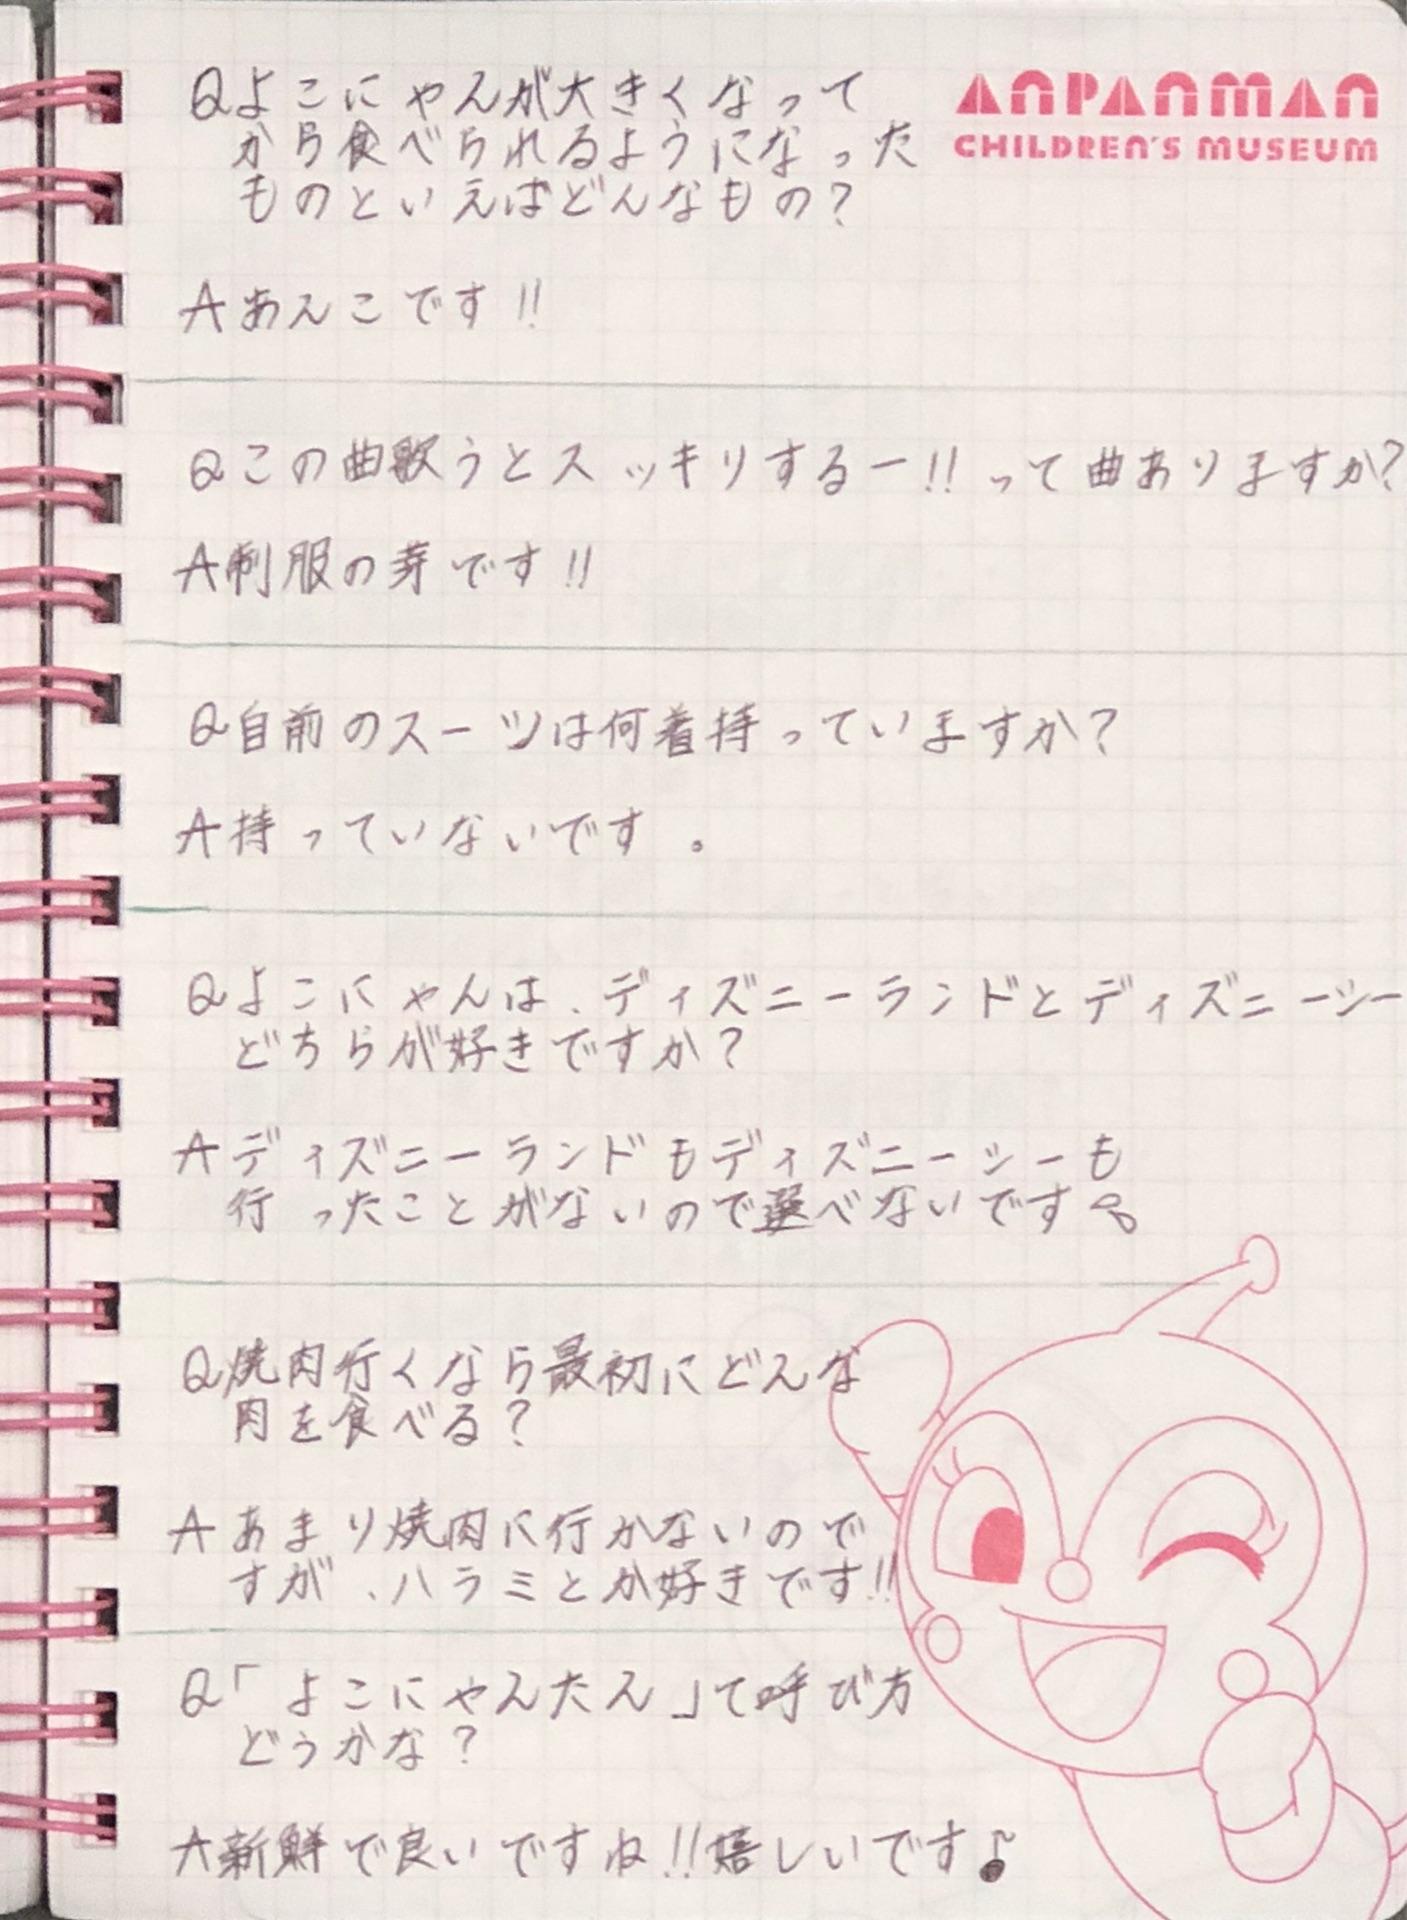 ANPANMAN
CHILDREN'S MUSEUM
Qよこにゃんが大きくなって
から食べられるようになった
ものといえばどんなもの?
Aあんこです!!
Qこの曲歌うとスッキリするー!!って曲ありますか?
A制服の芽です!!
Q自前のスーツは何着持っていますか?
A持っていないです。
Qよこにゃんは、ディズニーランドとディズニーシー
どちらが好きですか?
Aディズニーランドもディズニーシーも
行ったことがないので選べないです
Q焼肉行くなら最初にどんな
肉を食べる?
Aあまり焼肉に行かないので
すが、ハラミとか好きです!!
Q「よこにゃんたん」て呼び方
どうかな?
A新鮮で良いですね!!嬉しいです♪